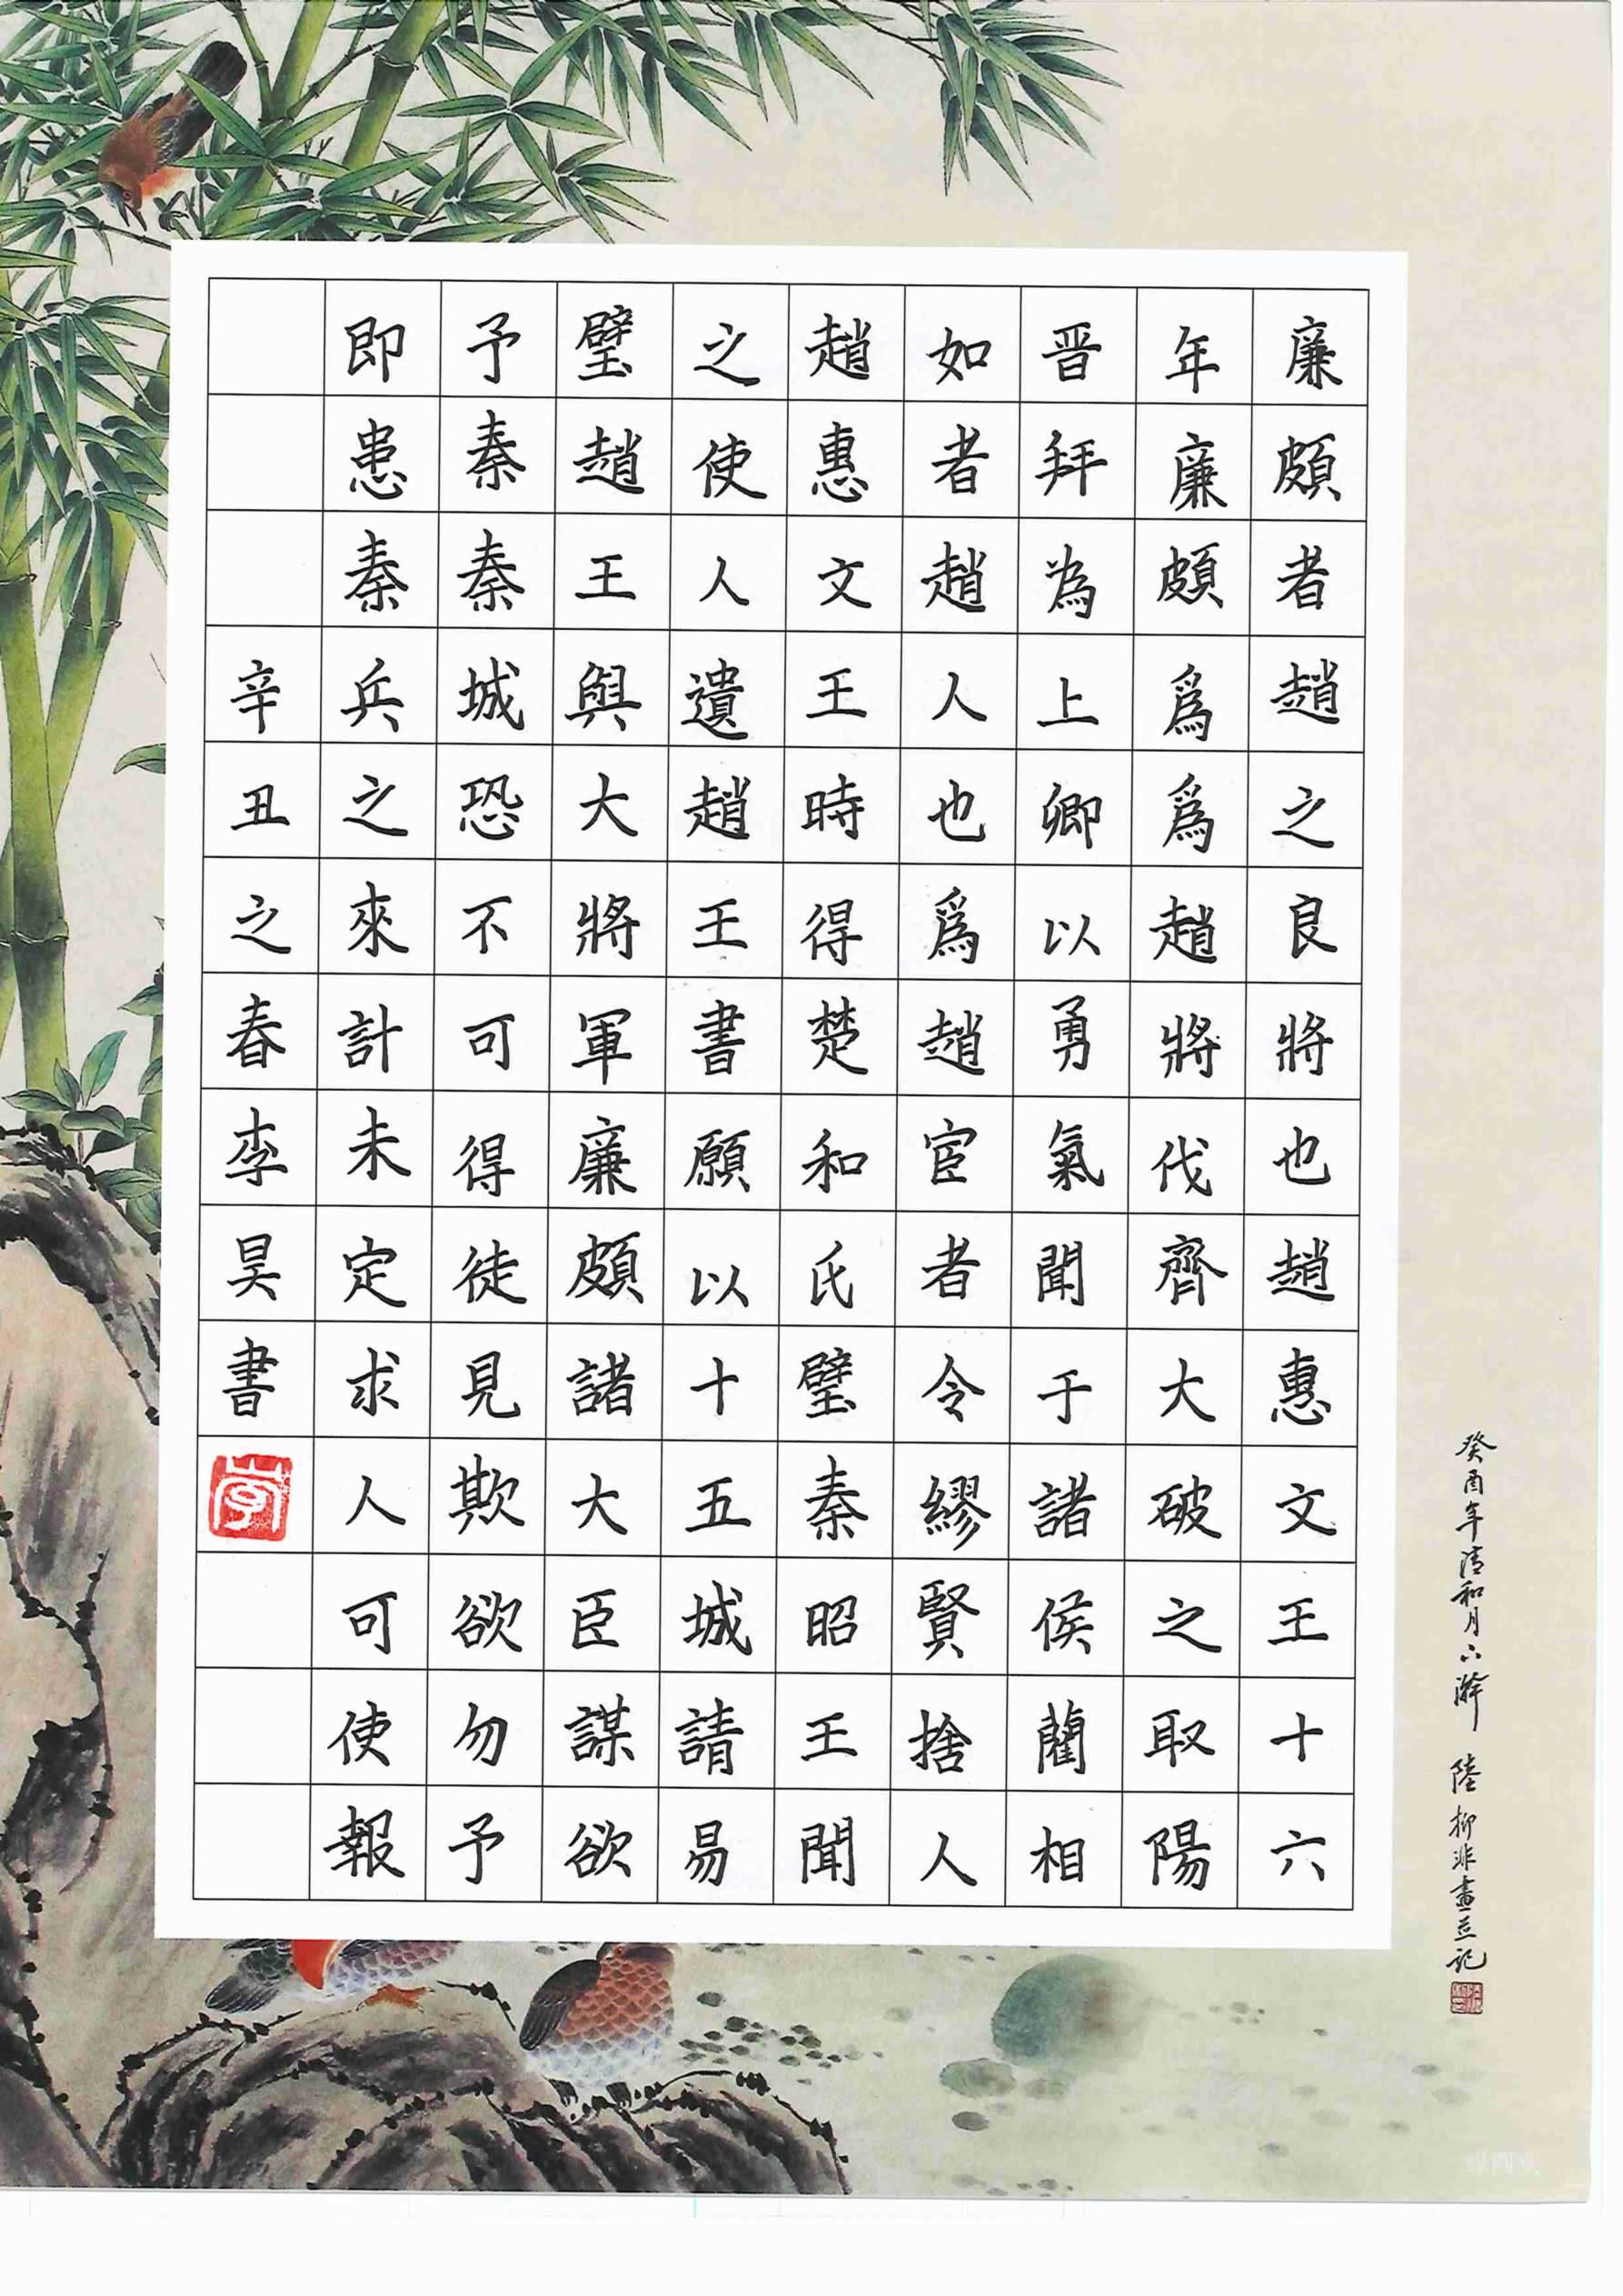 廉頗者趙之良將也趙惠文王十六
年廉頗爲爲趙將伐齊大破之取陽
晋拜為上卿以勇氣聞于諸侯藺相
如者趙人也爲趙宦者令繆賢捨人
趙惠文王時得楚和氏璧秦昭王聞
之使人遺趙王書願以十五城請易
璧趙王與大將軍廉頗諸大臣謀欲
予秦秦城恐不可得徒見欺欲勿予
即患秦兵之來計未定求人可使報
辛丑之春李昊書
癸酉年清和月六澣 陸抑非畫並記